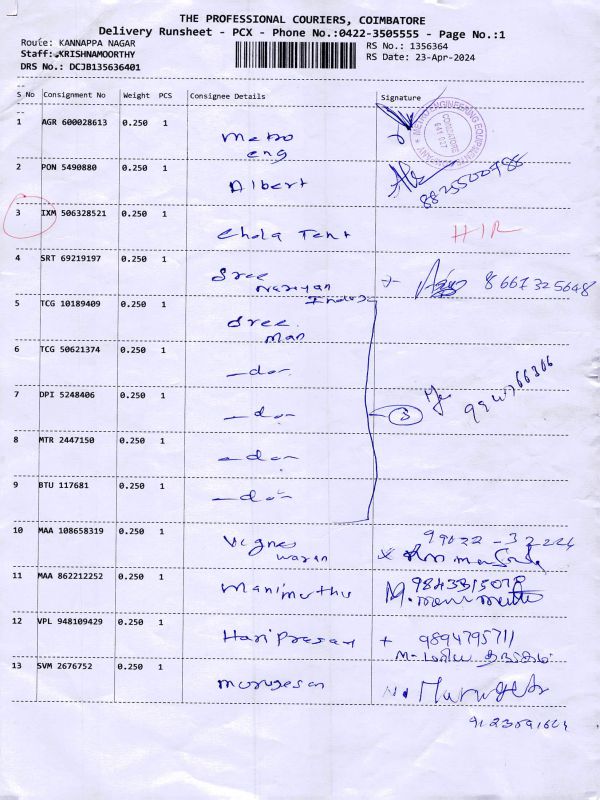 THE PROFESSIONAL COURIERS, COIMBATORE
Delivery Runsheet - PCX - Phone No.:0422-3505555 - Page No.:1
Route: KANNAPPA NAGAR
Staff: KRISHNAMOORTHY
DRS No.: DCJB135636401
RS No.: 1356364
RS Date: 23-Apr-2024
S No Consignment No Weight PCS Consignee Details Signature
1 AGR 600028613 0.250 1 Metro
eng
COIMBATORE
641 027
2 PON 5490880 0.250 1 Albert
8825500988
3 IXM 506328521 0.250 1 Chola Tent
4 SRT 69219197 0.250 1 Sree
Narayan 8667325648
5 TCG 10189409 0.250 1 Sree
Man
6 TCG 50621374 0.250 1 -do-
7 DPI 5248406 0.250 1 -do- 5
8 MTR 2447150 0.250 1 -do-
9 BTU 117681 0.250 1 -do-
10 MAA 108658319 0.250 1 Vignes
waran
11 MAA 862212252 0.250 1 Manimuthu
12 VPL 948109429 0.250 1 Hari Prasan 9894795711
13 SVM 2676752 0.250 1 murugesan